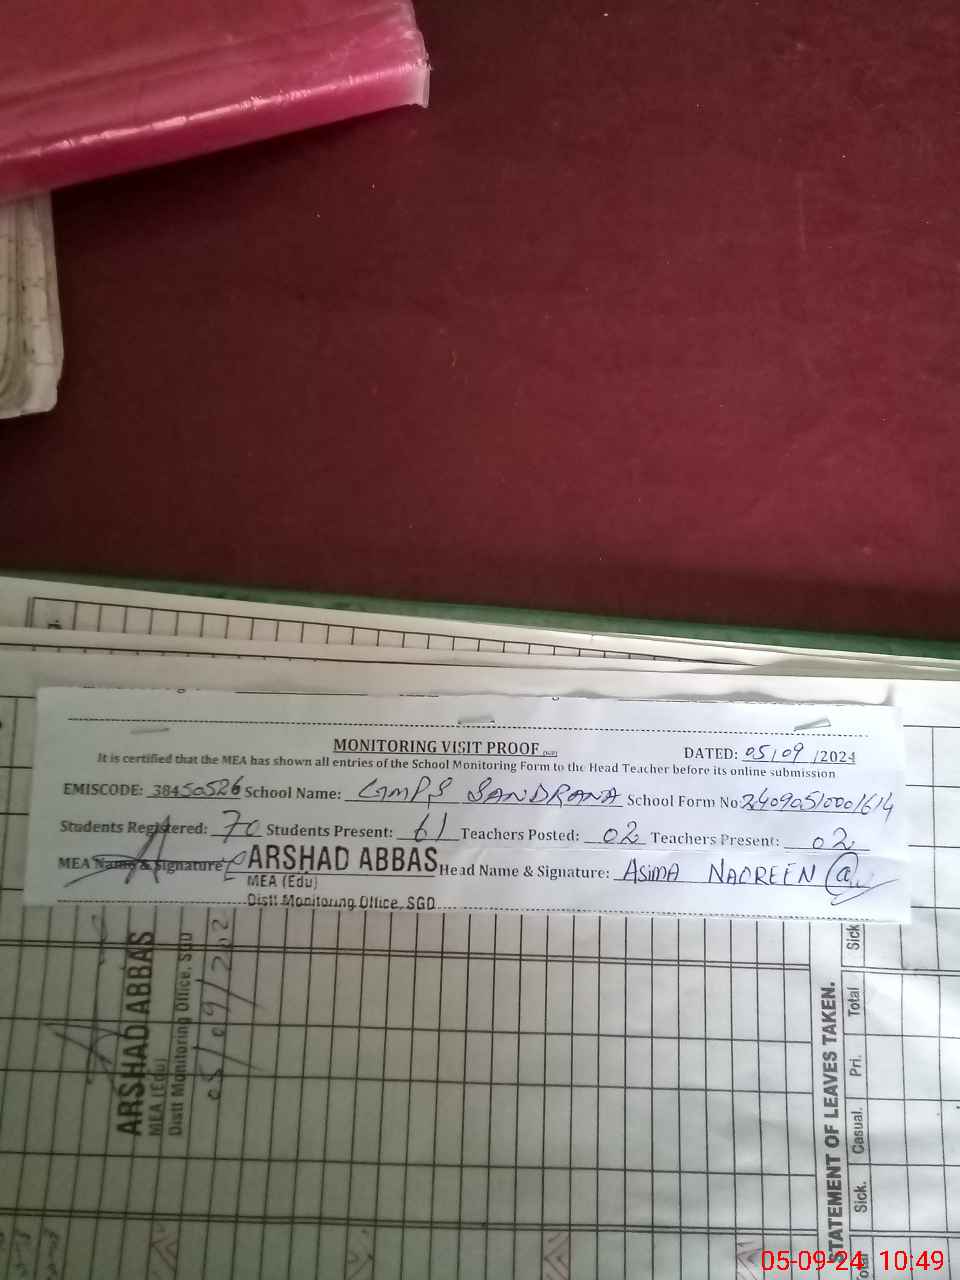 MONITORING VISIT PROOF
DATED: 05/09/2024
It is certified that the MEA has shown all entries of the School Monitoring Form to the Head Teacher before its online submission
EMISCODE: 38450526 School Name: GMPS SANDRANA School Form No:
Students Registered: 70 Students Present: 61 Teachers Posted: 02 Teachers Present: 02
MEA Name & Signature ARSHAD ABBAS Head Name & Signature: ASIMA NAOREEN
MEA (Edu)
Distt Monitoring Office, SGD
ARSHAD ABBAS
MEA (Edu)
Distt Monitoring Office, SGD
STATEMENT OF LEAVES TAKEN.
Sick. Casual. Pri. Total Sick
05-09-24 10:49